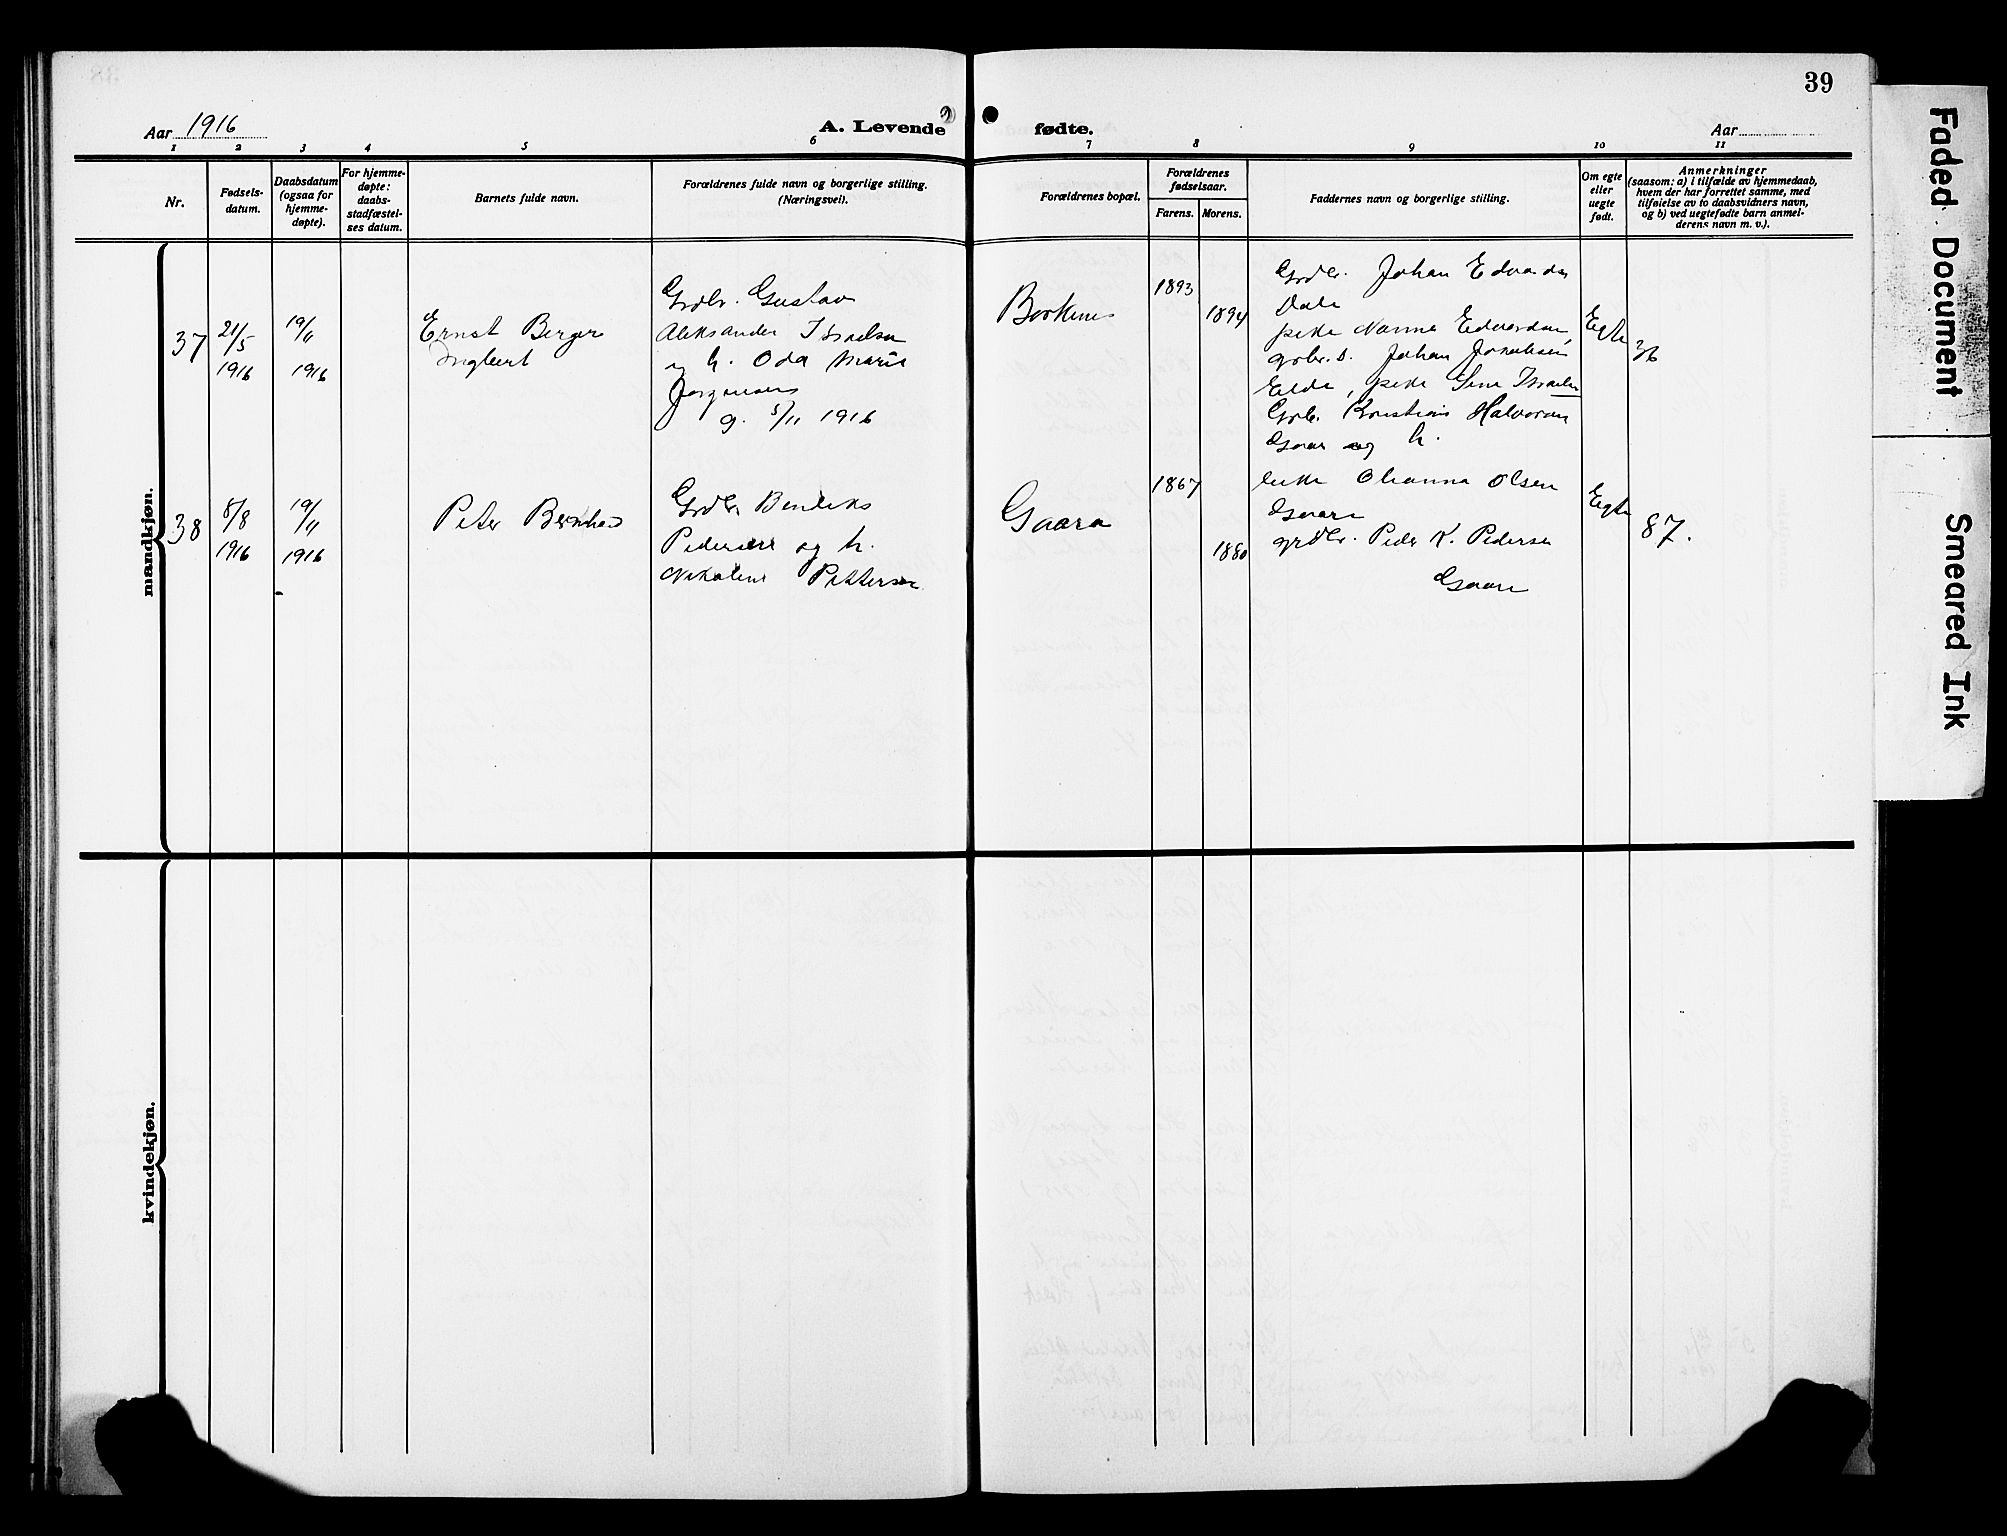 39
Aar 1916
A. Levende
fødte.
Aar
1 2 3 4 5 6 7 8 9 10 11
Nr.
Fødsels-
datum.
Daabsdatum
(ogsaa for
hjemme-
døpte).
For hjemme-
døpte:
daabs-
stadfæstel-
ses datum.
Barnets fulde navn.
Forældrenes fulde navn og borgerlige stilling.
(Næringsvei).
Forældrenes bopæl.
Forældrenes
fødselsaar.
Farens. Morens.
Faddernes navn og borgerlige stilling.
Om egte
eller
uegte
født.
Anmerkninger
(saasom: a) i tilfælde av hjemmedaab,
hvem der har forrettet samme, med
tilføielse av to daabsvidners navn,
og b) ved uegtefødte barn anmel-
derens navn m. v.).
mandkjøn.
37
21/5
1916
19/11
1916
Ernst Berger
Ingbert
Grdbr. Gustav
Aleksander Israelsen
og h. Oda Marie
Jørgensen
g. 5/11 1916
Borkenes
1893
1894
Grdbr. Johan Edvardsen
Dale
pike Nanna Edvardsen
grdbr. s. Johan Jakobsen
Elde, pike Sina Israelsen
Grdb. Kristian Halvorsen
Gaar og h.
Egte
36
38
8/8
1916
19/11
1916
Peter Bernhard
Grdbr. Bendiks
Pedersen og h.
Nikoline Pettersen
Gaara
1867
1880
Enke Olianna Olsen
Gaare
grdbr. Peder K. Pedersen
Gaare
Egte
87.
kvindekjøn.
Faded Document
Smeared Ink